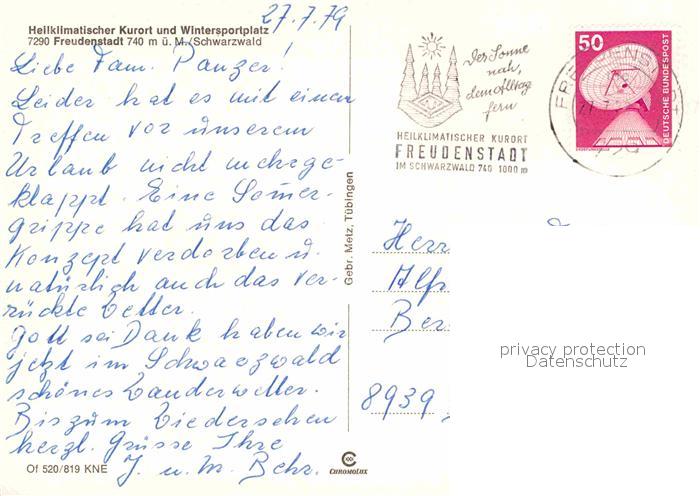 27.7.79
Heilklimatischer Kurort und Wintersportplatz
7290 Freudenstadt 740 m ü. M./Schwarzwald
Liebe Fam. Panzer!
Leider hat es mit einem
Treffen vor unserem
Urlaub nicht mehr ge-
klappt. Eine Somer-
grippe hat uns das
Konzept verdorben u.
natürlich auch das ver-
rückte Wetter.
Gott sei Dank haben wir
jetzt im Schwarzwald
schönes Wanderwetter.
Bis zum Wiedersehen
herzl. Grüsse Ihre
J. u. M. Behr.
Of 520/819 KNE
Gebr. Metz, Tübingen
CHROMOLUX
Der Sonne
nah,
dem Alltag
fern
HEILKLIMATISCHER KURORT
FREUDENSTADT
IM SCHWARZWALD 740 1000 m
50
DEUTSCHE BUNDESPOST
Herr
Alfr
Ber
8939
privacy protection
Datenschutz